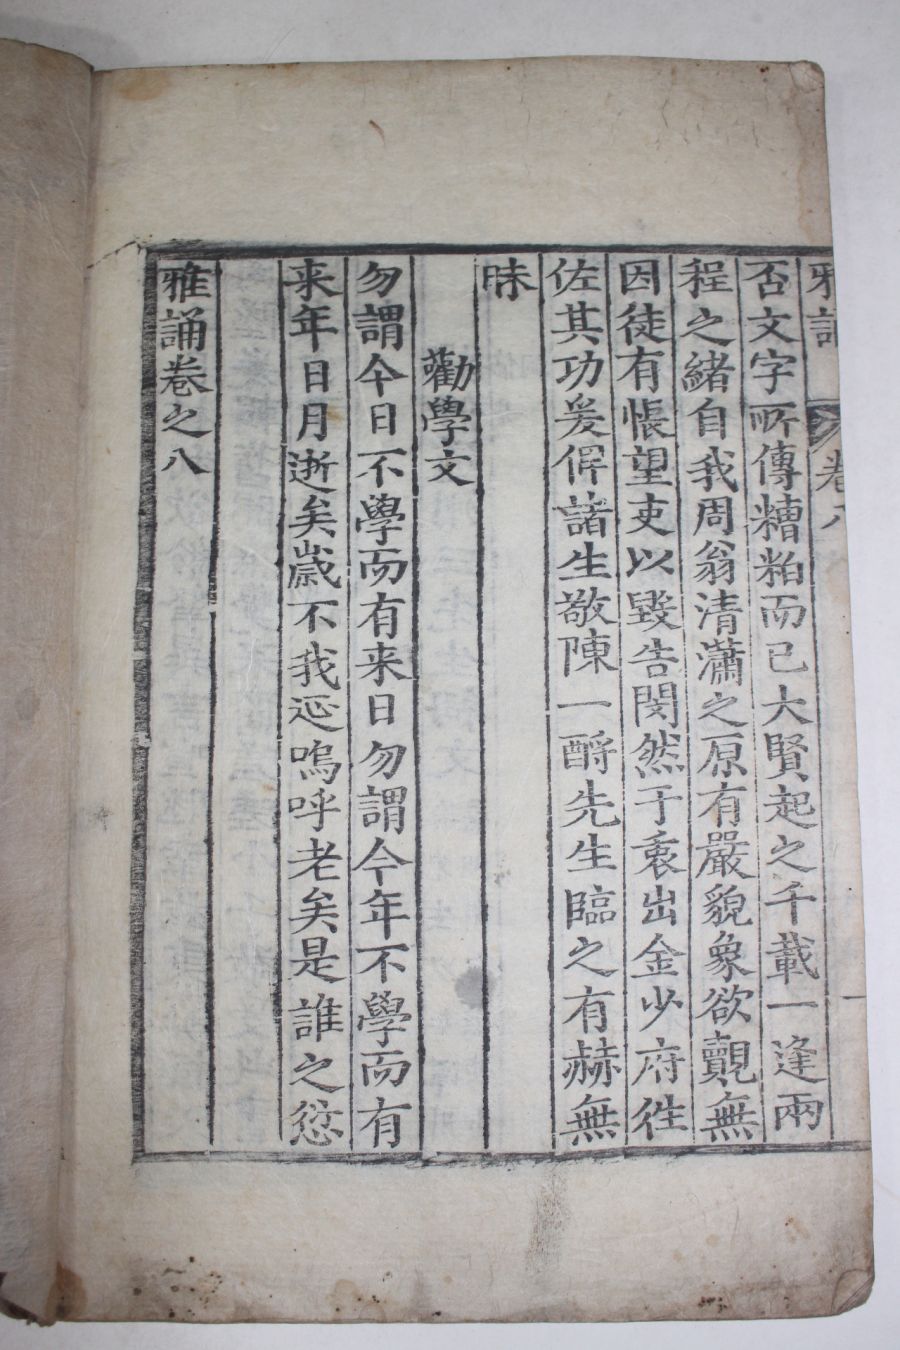 雅誦 卷八
否文字所傳糟粕而已大賢起之千載一逢兩
程之緒自我周翁清瀟之原有嚴貌象欲覿無
因徒有悵望吏以毀告閔然于衷出金少府徃
佐其功爰俾諸生敬陳一酹先生臨之有赫無
昧
勸學文
勿謂今日不學而有来日勿謂今年不學而有
来年日月逝矣歲不我延嗚呼老矣是誰之愆
雅誦卷之八